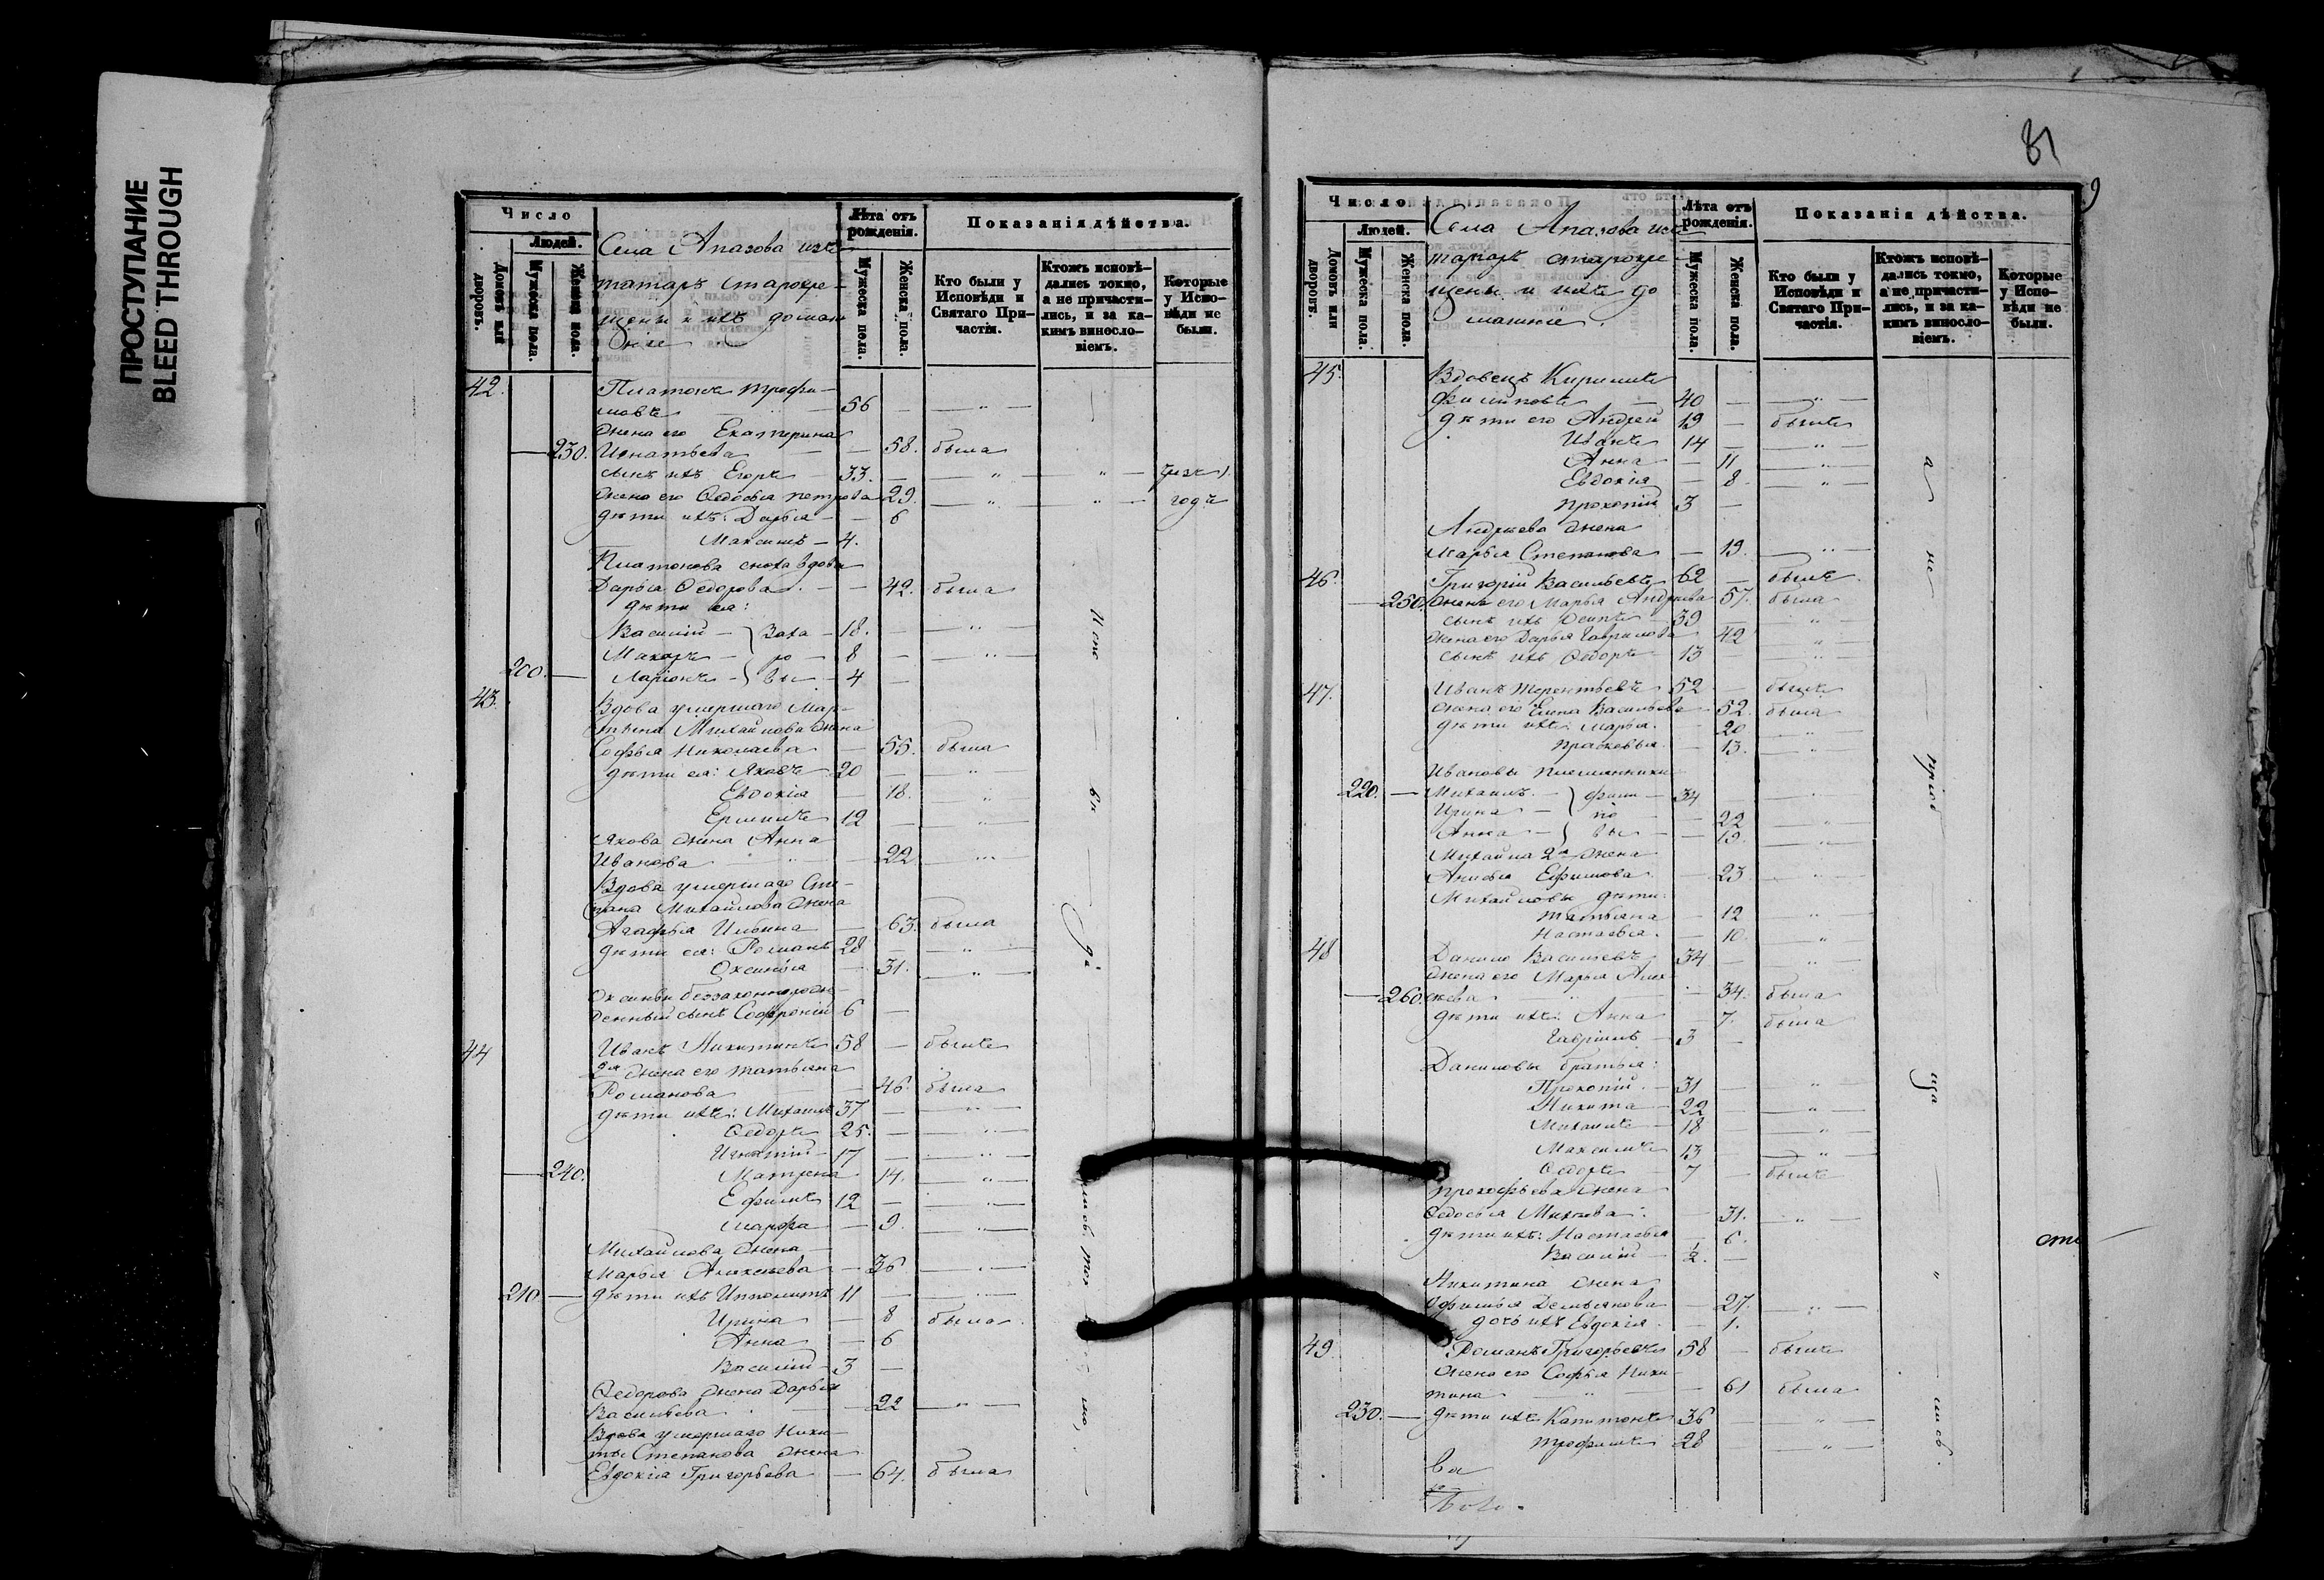 ПРОСТУПАНИЕ
BLEED THROUGH
Число
Людей.
Домовъ или дворовъ.
Мужеска пола.
Женска пола.
Села Апазова изъ
татаръ старокре-
щены и ихъ домаш
Лѣта отъ рожденія.
Мужеска пола.
Женска пола.
Показанія дѣйства.
Кто были у Исповѣди и Святаго При-частія.
Ктожъ исповѣ-дались токмо, а не причасти-лись, и за ка-кимъ винosло-віемъ.
Которые у Испо-вѣди не были.
42. Платонъ Трофи-
мовъ — 56 — — „ —
жена его Екатерина
— 230. Игнатьева — — 58. была
сынъ ихъ Егоръ 33. — — „ — „ —
жена его Ѳедосья Петрова 29. — „ — „ — годъ
дѣти ихъ: Дарья — — 6
Максимъ — 4.
Платонова сноха вдова
Дарья Ѳедорова. — — 42. была
дѣти ея:
Василій — } Заха — 18. — — „ —
Макаръ — } ро — 8 — — „ —
200. — Ларіонъ — } вы — 4 —
43. Вдова умершаго Мар-
тына Михайлова жена
Софья Николаева — 55. была
дѣти ея: Яковъ 20 — — „ —
Евдокія — 18. — „ —
Ермилъ 12 — — „ —
Якова жена Анна
Иванова — „ — 22 — „ —
Вдова умершаго Сте-
пана Михайлова жена
Агафья Ильина — 63. была
дѣти ея: Романъ 28 — — „ —
Оксинья — 31. — „ —
Оксиньи беззаконнорож-
денный сынъ Софроній 6 —
44 Иванъ Никитинъ 58 — былъ
2я жена его Татьяна
Романова — 46. была
дѣти ихъ: Михаилъ 37 — — „ —
Ѳедоръ 25. — — „ —
Игнатій — 17 — — „ —
— 240. Матрена — 14. — „ —
Ефимъ 12 — — „ —
Марфа — 9. — „ —
Михайлова жена —
Марья Алексеева — 36 — „ —
210 — дѣти ихъ Ипполитъ 11 — — „ —
Ирина — 8 была
Анна — 6
Василій — 3 —
Ѳедорова жена Дарья
Васильева — 22 — „ —
Вдова умершаго Ники-
ты Степанова жена
Евдокія Григорьева — 64. была
Испо — вѣ — да
81
9
Число
Людей.
Домовъ или дворовъ.
Мужеска пола.
Женска пола.
Села Апазова изъ
татаръ старокре
щены и ихъ до
машніе.
Лѣта отъ рожденія.
Мужеска пола.
Женска пола.
Показанія дѣйства.
Кто были у Исповѣди и Святаго При-частія.
Ктожъ исповѣ-дались токмо, а не причасти-лись, и за ка-кимъ виносло-віемъ.
Которые у Испо-вѣди не были.
45. Вдовецъ Кирилъ
Филиповъ — 40 — — „ —
дѣти его Андрей 19 — былъ
Иванъ 14 — — „ —
Анна — 11 — „ —
Евдокія — 8 — „ —
Прокопій 3 —
Андреева жена
Марья Степанова — 19. — „ —
46. Григорій Васильевъ 62 — былъ
— 250. жена его Марья Андреева 57. была
сынъ ихъ Осипъ — 39 — „ —
жена его Дарья Гаврилова 42 „
сынъ ихъ Ѳедоръ 13 — — „ —
47. Иванъ Терентьевъ 52 — былъ
жена его Елена Васильева — 52. была
дѣти ихъ: Марья — 20 — „ —
Прасковья — 13. — „ —
Ивановы племянники
220. — Михаилъ — } Фили — 34 — „ —
Ирина — } по — — 22 — „ —
Анна — } вы — — 19. — „ —
Михайла 2я жена
Анисья Ефимова — 23 — „ —
Михайловы дѣти:
Татьяна — 12 — „ —
Настасья. — 10. — „ —
48 Данило Васильевъ 34 — — „ —
жена его Марья Алек-
— 260. сѣева — „ — — 34. была
дѣти ихъ: Анна — 7. была
Гаврилъ — 3 —
Даниловы братья:
Прокопій — 31 — — „ —
Никита — 22 — — „ —
Михаилъ — 18 — — „ —
Максимъ 13 — — „ —
Ѳедоръ — 7 — былъ
Прокофьева жена
Ѳедосья — 31. — „ —
дѣти ихъ: Настасья — 6.
Василій — ½. —
Никитина жена
Офимья Демьянова — 27. — „ —
дочь ихъ Евдокія — 1.
49. Романъ Григорьевъ 58 — былъ
жена его Софья Ники
тина — „ — — 61 была
230. — дѣти ихъ Капитонъ 36 — — „ —
Трофимъ 28 — — „ —
ва
а не прича — ща — лись.